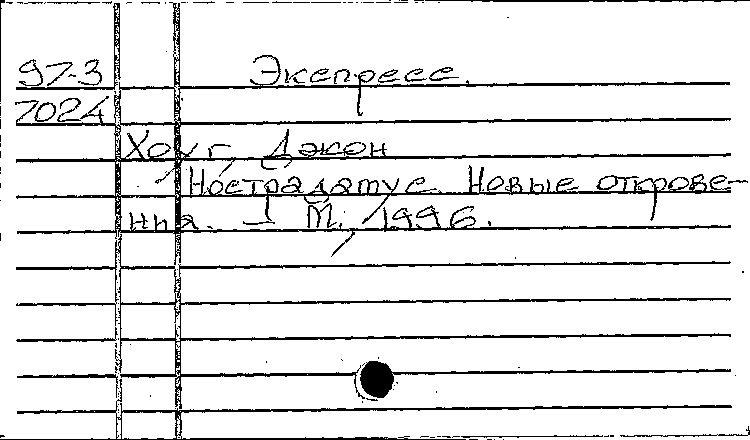 97-3 Экспресс.
7024
Хоуг, Джон
Нострадамус. Новые открове-
ния. - М., 1996.